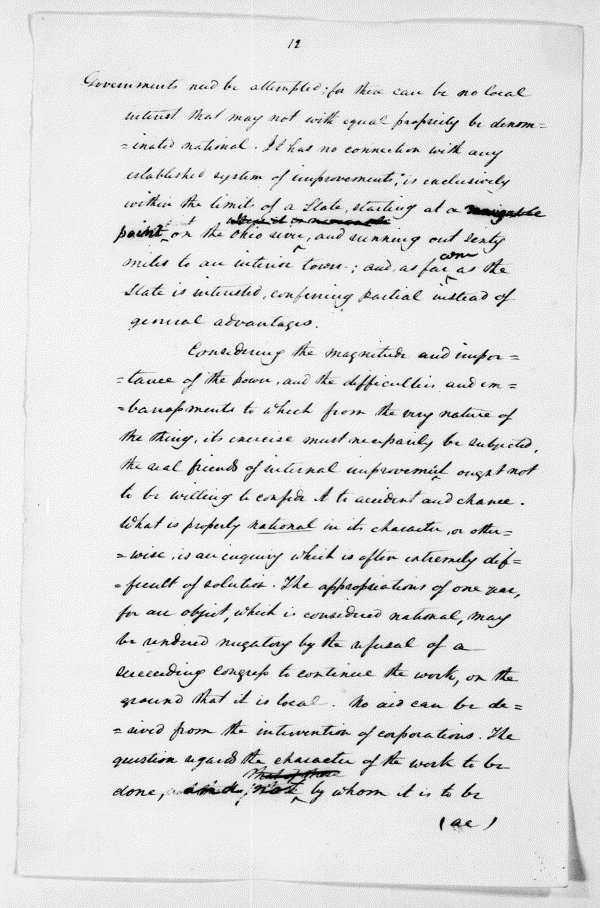 12
Governments need be attempted; for there can be no local
interest that may not with equal propriety be denom=
=inated national. It has no connection with any
established system of improvements; is exclusively
within the limits of a State, starting at a navigable
point on the Ohio river, and running out sixty
miles to an interior town; and, as far as the
State is interested, conferring partial instead of
general advantages.
Considering the magnitude and impor=
=tance of the power, and the difficulties and em=
=barrassments to which from the very nature of
the thing, its exercise must necessarily be subjected,
the real friends of internal improvement ought not
to be willing to confide it to accident and chance.
What is properly national in its character, or other=
=wise, is an enquiry which is often extremely dif=
=ficult of solution. The appropriations of one year,
for an object, which is considered national, may
be rendered nugatory by the refusal of a
succeeding congress to continue the work, on the
ground that it is local. No aid can be de=
=rived from the intervention of corporations. The
question regards the character of the work to be
done, and not by whom it is to be
(ac)